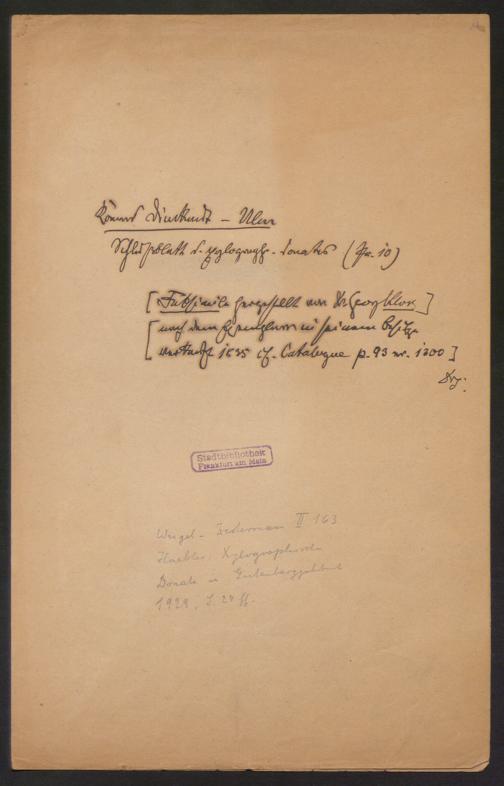 Conrad Dinckmut – Ulm
Schlußblatt d. xylograph. Donates (Fr. 10)
[Faksimile hergestellt von Dr Georg Kloss]
[nach dem Exemplar in seinem Besitze
verkauft 1835 cf. Catalogue p. 93 nr. 1300]
Stadtbibliothek
Frankfurt am Main
Weigel – Zestermann II 163
Haebler, Xylographische
Donate in Gutenbergjahrbuch
1928, S. 24 ff.